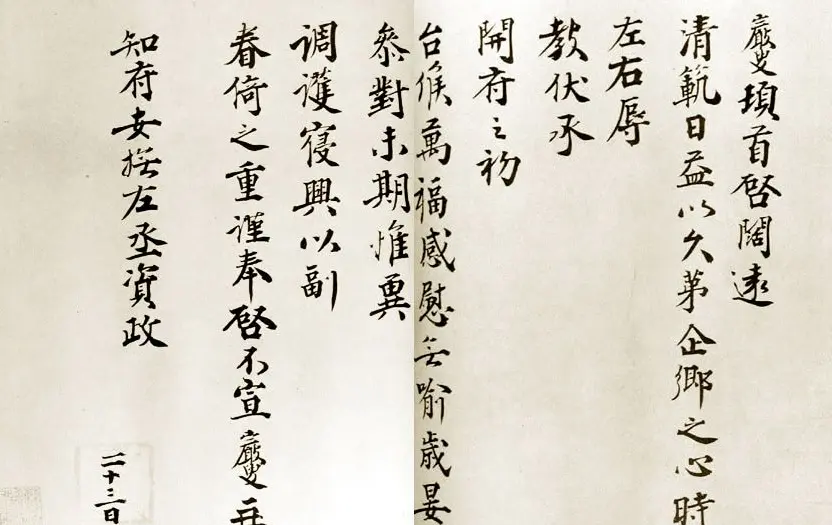 巖叟頓首啓闊遠
清範日益以久第企鄉之心時
左右辱
教伏承
開府之初
台候萬福感慰無喻歲晏
參對未期惟冀
調護寢興以副
眷倚之重謹奉啓不宣巖叟再
知府安撫左丞資政
二十三日